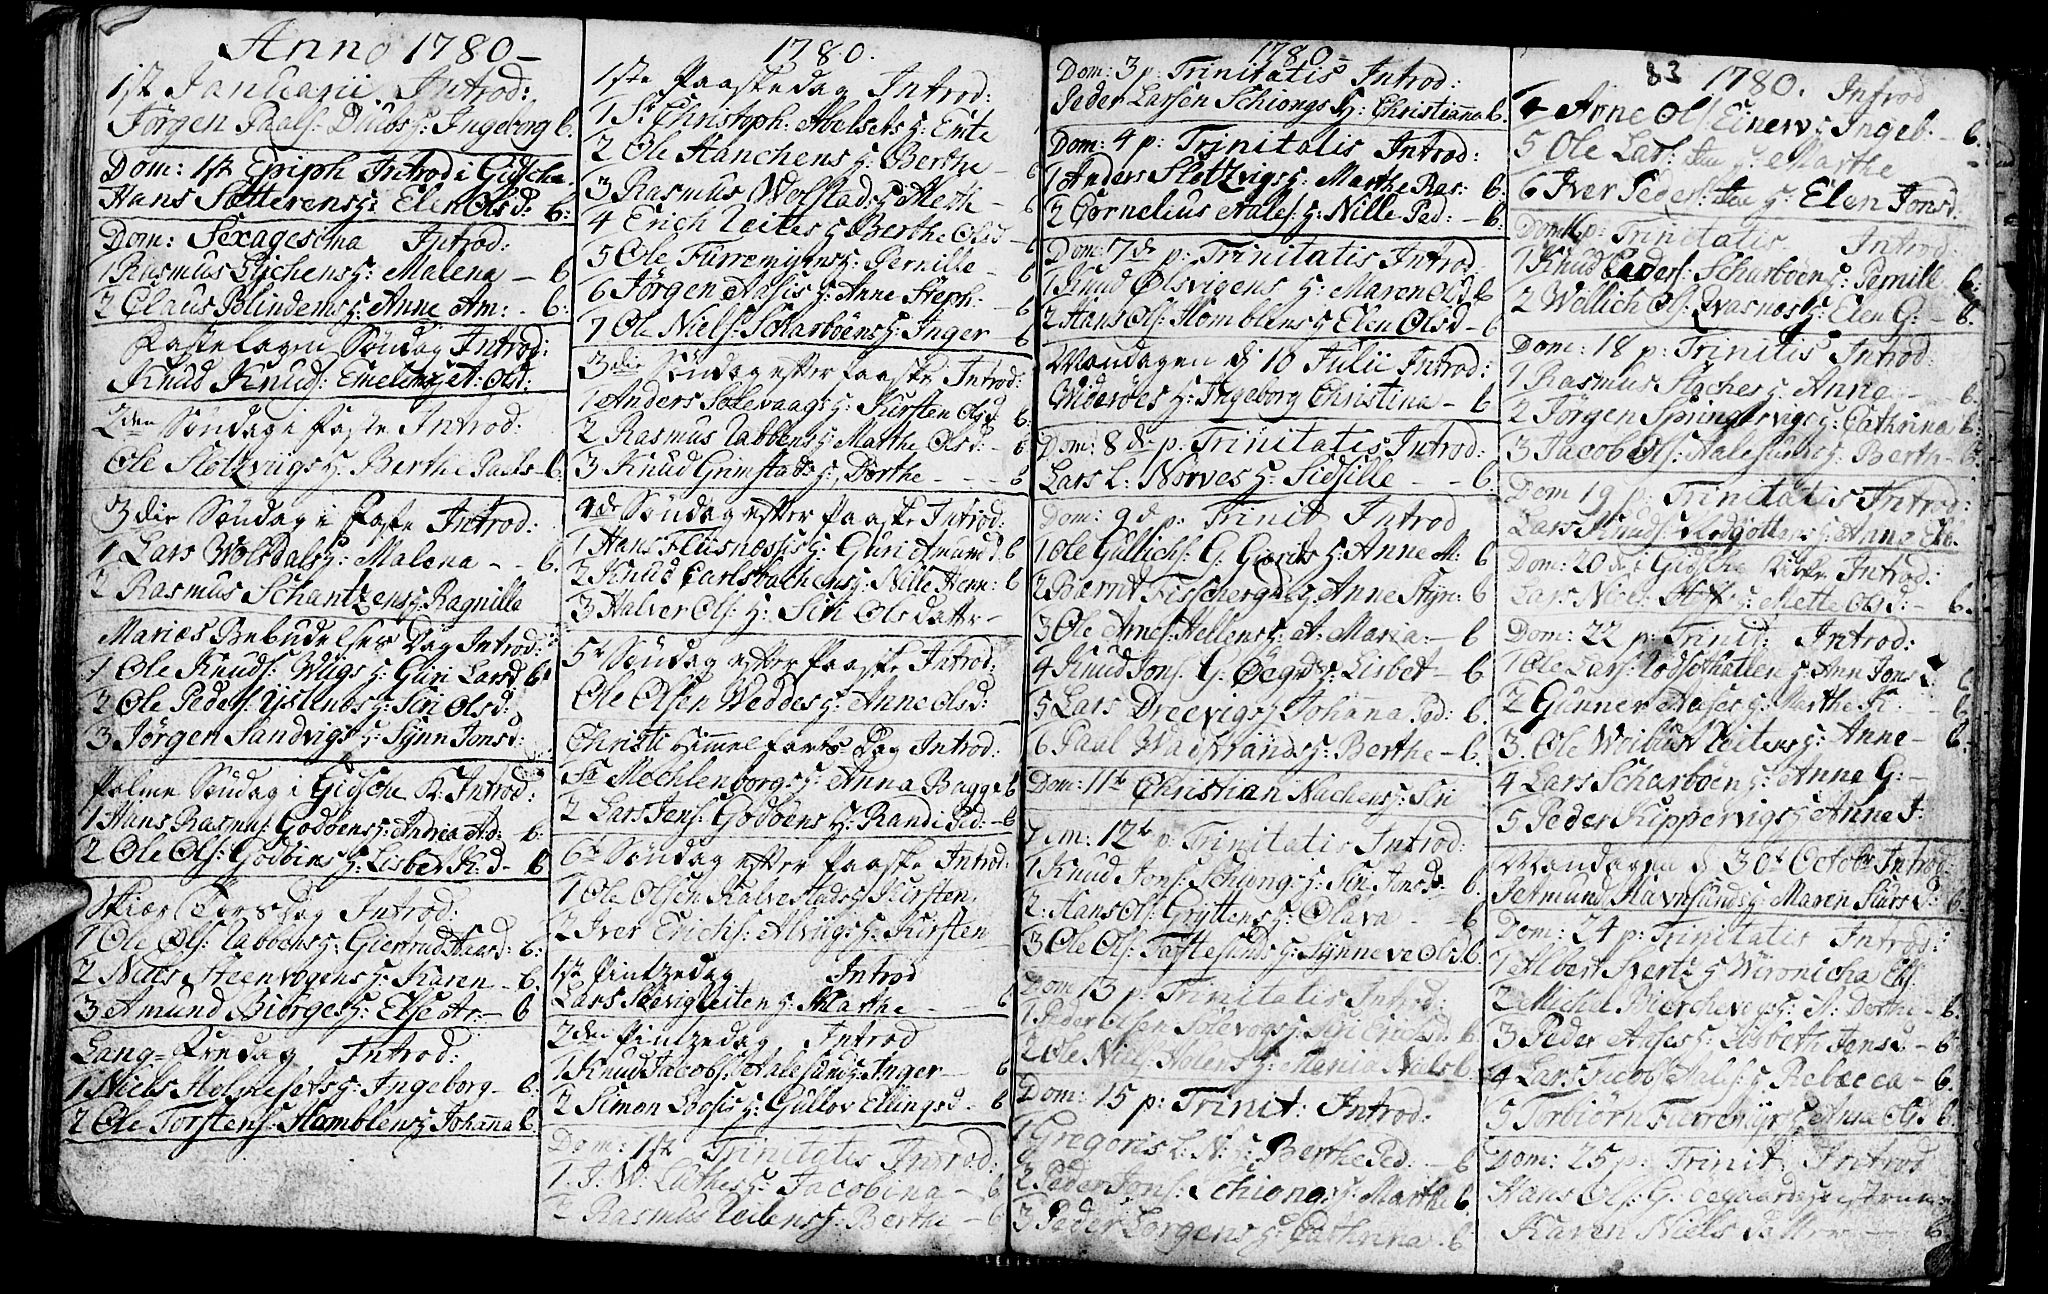 Anno 1780
1st Januarii Introd:
Jörgen Paals: Diubs H: Ingeborg 6.
Dom: 1st Epiph Introd i Gidsche
Hans Sætterens H: Elen Olsd: 6:
Dom: Sexagesima Introd:
1 Rasmus Gischens H: Malena - 6.
2 Claus Blindems H: Anne Am: - 6:
Fastelagen Söndag Introd:
Knud Knuds: Emelins H: A: Olsd:
2den Söndag i Faste Introd:
Ole Slotzvigs H: Berthe Paals - 6.
3die Söndag i Faste Introd:
1 Lars Wolsdals H: Malena - - 6.
2 Rasmus Schantzens H: Ragnille
Mariæ Bebudelses Dag Introd:
1 Ole Knuds: Wiigs H: Guri Larsd 6
2 Ole Peders: H: Siri Olsd:
3 Jörgen Sandvigs H: Synn Jonsd:
Palme Söndag i Gidsche K: Introd:
1 Hans Rasmus: Godöens H: Andrea - 6.
2 Ole Ols: Godöens H: Lisbet K:d - 6
Skiær Torsdag Introd:
1 Ole Ols: H: Giertrud 6:
2 Niels Steenvogens H: Karen - 6.
3 Amund Biörges H: Else Ar: - 6
Lang-Fredag Introd:
1 Niels Holmesets H: Ingeborg - 6.
2 Ole Torstens: Hamblens H: Johanna 6.
1780.
1ste Paaskedag Introd:
1 Sr Christoph: Abelsets H: Emte
2 Ole Hanchens H: Berthe - 6
3 Rasmus Wolstads H: Aleth - 6
4 Erich Leites H: Berthe Olsd - 6
5 Ole Furremyrens H: Pernille - 6
6 Jörgen Aases H: Anne Steph: - 6
7 Ole Niels: Scharböens H: Inger - 6
3die Söndag efter Paaske Introd:
1 Anders Solevaags H: Kirsten Olsd 6.
2 Rasmus Nabbens H: Marthe Olsd: - 6
3 Knud Grimstads H: Dorthe - - - 6
4de Söndag efter Paaske Introd:
1 Hans Fliisnes H: Guri Amund:d 6
2 Knud Carlsbachens H: Nille Henr: 6
3 Halver Ols: H: Siri Olsdatter -
5te Söndag efter Paaske Introd:
Ole Olsen Weddes H: Anne Olsd:
Christi Himmelfarts Dag Introd:
Sr Mechlenborgs H: Anna Bagge 6
2 Lars Jens: Godöens H: Randi Ped: - 6
6te Söndag efter Paaske Introd:
1 Ole Olsen Kalvestads H: Kirsten.
2 Iver Erichs: Alviigs H: Kirsten
1ste Pintzedag Introd
Lars Solevigleiten H: Marthe - 6
2den Pintzedag Introd
1 Knud Jacobs: Aalesund H: Inger - 6
2 Simon H: Gullov Ellingsd - 6
Dom: 1st Trinitatis Introd:
1. J. W. Lüthes H: Jacobina - 6.
2 Rasmus Leitens H: Berthe - 6
1780
Dom: 3 p: Trinitatis Introd:
Peder Larsen Schiongs H: Christianna 6.
Dom: 4 p: Trinitatis Introd:
1 Anders Slotzvigs H: Marthe Ras: 6.
2 Cornelius Aales: H: Nille Ped: - 6.
Dom: 7de p: Trinitatis Introd
1 Knud Olsvigens H: Maren Olsd 6
2 Hans Ols: Hamblens H: Elen Olsd - 6
Mandagen d: 10 Julii Introd:
Wideröes H: Ingeborg Christina - 6
Dom: 8de p: Trinitatis Introd:
Lars L: Nörves H: Sidsille - - 6
Dom: 9de p: Trinit Introd
1 Ole Gullichs: G. H: Anne M: 6
2 Bærnt Fischergd H: Anne Styr: 6
3 Ole Arnes: Hellens H: A: Maria: - 6
4 Knud Jons: G. H: Lisbet - 6
5 Lars Dreevigs H: Johanna Ped: 6.
6 Paal H: Berthe - 6.
Dom: 11te Christian Nachens H: Siri
Dom: 12te p: Trinitatis Introd:
1 Knud Jons: Schiong H: Siri Jonsd: 6.
2. Hans Ols: Gryttens H: Olava - - 6
3 Ole Ols: Taftesunds H: Synneve Olsd 6.
Dom 13 p: Trinitatis Introd:
1 Peder Olsen Solevogs H: Siri Erichsd 6
2 Ole Niels: H: Maria Niels 6.
Dom: 15 p: Trinit: Introd:
1 Gregoris L: N: H: Berthe Ped: - 6
2 Peder Jons: Schiongs H: Marthe 6.
3 Peder Lorgens H: Cathrina 6
83 1780. Introd
4 Arne Ols: Einerv H: Ingeb. - 6.
5 Ole Lars: H: Marthe -
6 Iver Peders: H: Elen Jonsd:
Dom: 16 p: Trinitatis Introd:
1 Knud Peders: Scharböens H: Pernille 6.
2 Wollich Ols: Qvasnes H: Elen G: - 6.
Dom: 18 p: Trinitis Introd:
1 Rasmus Slaches H: Anne - 6.
2 Jörgen Springersvigs H: Cathrina 6:
3 Jacob Ols: Aalesunds H: Berth - 6.
Dom 19 p: Trinitatis Introd:
Lars Knuds: H: Anna
Dom: 20de i Gidsche Kirke Introd:
Lars Niels: H: Mette Olsd: - 6.
Dom: 22 p: Trinit: Introd:
1 Ole Lars: H: Ann Jons 6
2 Gunner Aases H: Marthe K. - 6.
3. Ole Leitens H: Anne - 6.
4 Lars Scharböen H: Anne G: -
5 Peder Kippervigs H: Anne J:
Mandagen d 30te Octobr Introd:
Jetmund Havnsunds H: Maren 6.
Dom: 24 p: Trinitatis Introd:
1 Albert Svertz H: Weronicha
2 Michel Bierchevogs H: A: Dorthe - 6.
3 Peder Aases H: Lisbeth Jensd - 6
4 Lars Jacobs: Aales: H: Rebæcca - 6.
5 Torbiörn Furremyr H: Anne Ols 6.
Dom: 25 p: Trinit. Introd
Hans Ols: G: H:
Karen Nielsdatter - 6.